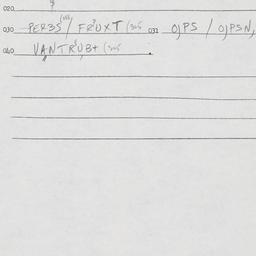 020
030 PERBS / FRUXT 031 OJPS / OJPSN,
040 VANTRUBT